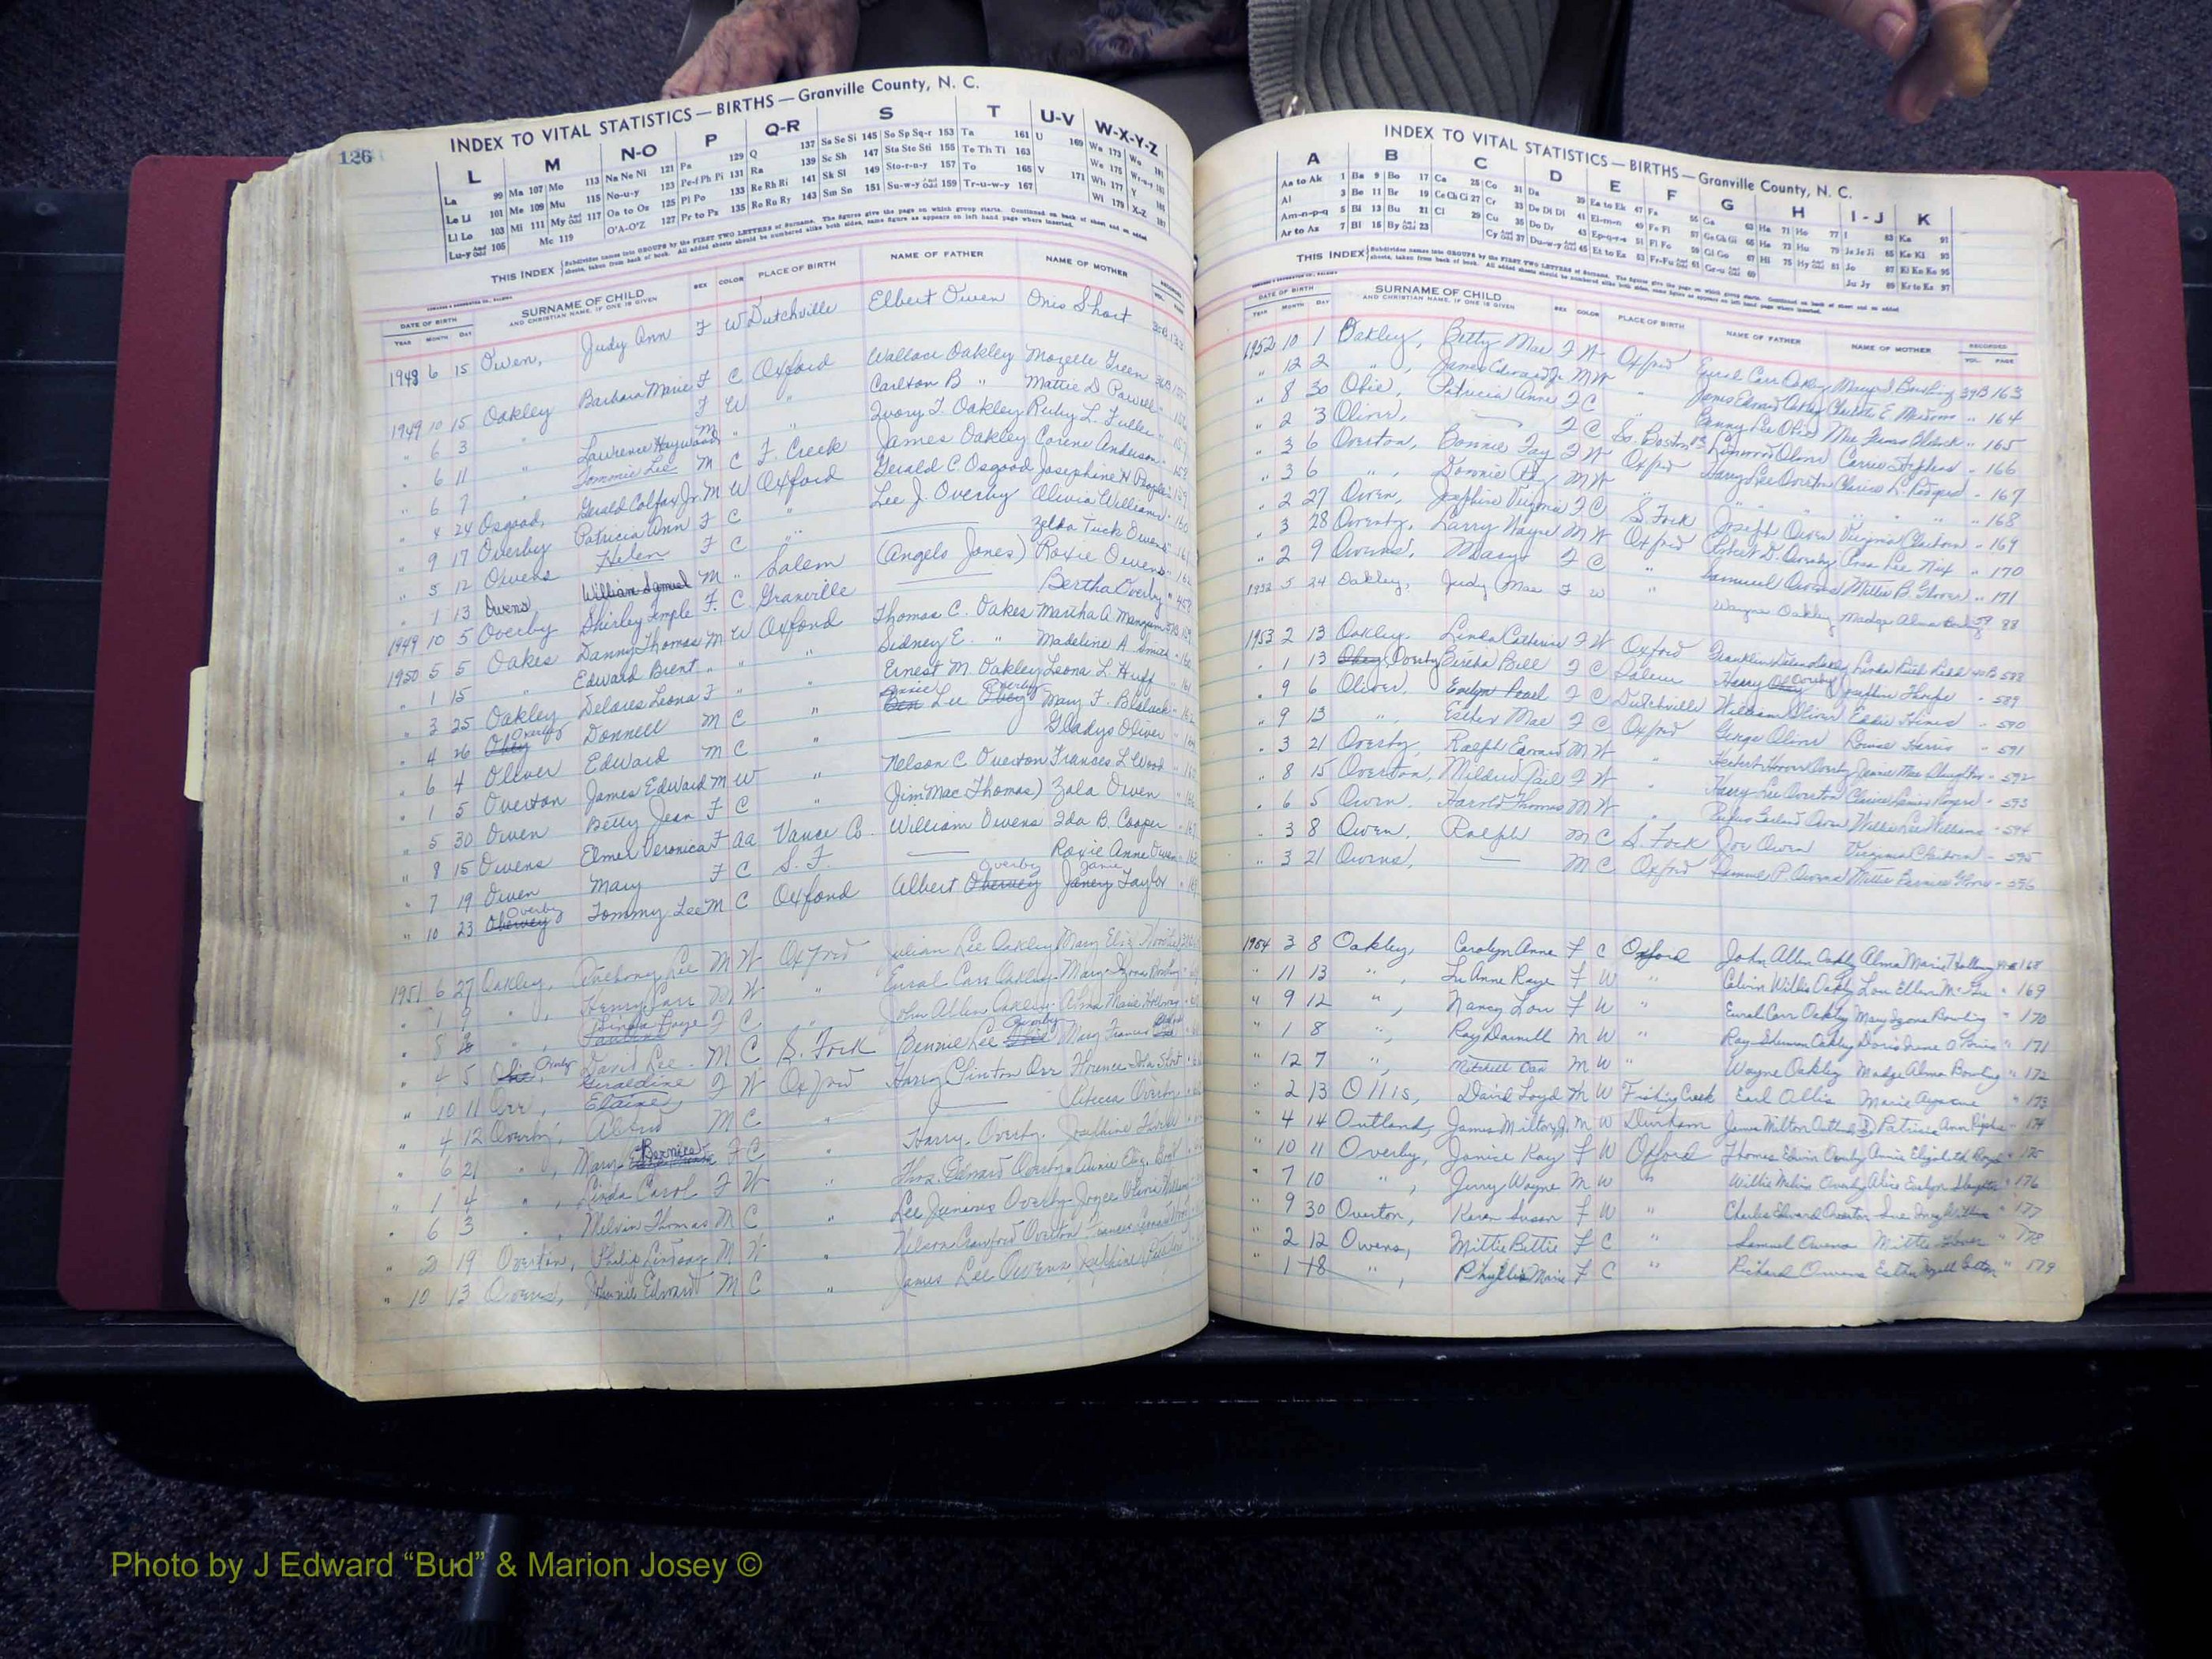 126
INDEX TO VITAL STATISTICS — BIRTHS — Granville County, N. C.
L M N-O P Q-R S T U-V W-X-Y-Z
La 99 Ma 107 Mo 113 Na Ne Ni 121 Pa 129 Q 137 Sa Se Si 145 So Sp Sq-r 153 Ta 161 U 169 Wa 173 Wo
Le Li 101 Me 109 Mu 115 No-u-y 123 Pe-f Ph Pi 131 Ra 139 Sc Sh 147 Sta Ste Sti 155 Te Th Ti 163 We 175
Ll Lo 103 Mi 111 My And Odd 117 On to Os 125 Pl Po 133 Re Rh Ri 141 Sk Sl 149 Sto-r-u-y 157 To 165 V 171 Wh 177 Y
Lu-y And Odd 105 Mc 119 O'A-O'Z 127 Pr to Pz 135 Ro Ru Ry 143 Sm Sn 151 Su-w-y And Odd 159 Tr-u-w-y 167 Wi 179 X-Z
THIS INDEX Subdivides names into GROUPS by the FIRST TWO LETTERS of Surname. The figures give the page on which group starts. Continued on back of sheet and on added
sheets, taken from back of book. All added sheets should be numbered alike both sides, same figure as appears on left hand page where inserted.
DATE OF BIRTH SURNAME OF CHILD SEX COLOR PLACE OF BIRTH NAME OF FATHER NAME OF MOTHER
YEAR MONTH DAY AND CHRISTIAN NAME, IF ONE IS GIVEN
1948 6 15 Owen, Judy Ann F W Dutchville Elbert Owen Onis Short
1949 10 15 Oakley Barbara Marie F C Oxford Wallace Oakley Mozelle Green
" 6 3 " —— F W " Carlton B " Mattie D Powell
" 6 11 " Lawrence Haywood M " " Ivory T. Oakley Ruby L. Fuller
" 6 7 " Tommie Lee M C F. Creek James Oakley Corene Anderson
" 4 24 Osgood, Gerald Colfax Jr. M W Oxford Gerald C. Osgood Josephine H Peoples
" 9 17 Overby Patricia Ann F C " Lee J. Overby Olivia Williams
" 5 12 Owens Helen F C " —— Zelda Tuck Owens
" 1 13 Owens William Samuel M " Salem (Angelo Jones) Roxie Owens
1949 10 5 Overby Shirley Temple F. C Granville —— Bertha Overby
1950 5 5 Oakes Danny Thomas M W Oxford Thomas C. Oakes Martha A Mangum
" 1 15 " Edward Brent " " " Sidney E. " Madeline A Smith
" 3 25 Oakley Delores Leona F " " Ernest M. Oakley Leona L Huff
" 4 26 Obey Overby Donnell M C " Ben Bennie Lee Obey Overby Mary F. Blalock
" 6 4 Oliver Edward M C " —— Gladys Oliver
" 1 5 Overton James Edward M W " Nelson C Overton Frances L Wood
" 5 30 Owen Betty Jean F C " (Jim Mac Thomas) Zola Owen
" 8 15 Owens Elmer Veronica F aa Vance Co. William Owens Ida B. Cooper
" 7 19 Owen Mary F C S. F. —— Roxie Anne Owen
" 10 23 Obervey Overby Tommy Lee M C Oxford Albert Obervey Overby Janey Janie Taylor
1951 6 27 Oakley, Anthony Lee M W Oxford Julian Lee Oakley Mary Eliz.
" 1 9 " , Henry Carr M W " Eural Carr Oakley Mary Izona Bowling
" 8 " , Linda Faye F C " John Allen Oakley Alma Marie Holloway
" 4 5 Overby David Lee M C S. Fork Bennie Lee Overby Mary Frances
" 10 11 Orr, Geraldine Elaine F W Oxford Harry Clinton Orr Florence Ida Short
" 4 12 Overby, M C " —— Rebecca Overby
" 6 21 " , Mary Bernice F C " Harry Overby Josephine
" 1 4 " , Linda Carol F W " Thos. Edward Overby Annie Eliz.
" 6 3 " , Melvin Thomas M C Lee Junious Overby Joyce Olivia
" 2 19 Overton, Philip Lindsay M W " Nelson Crawford Overton Frances
" 10 13 Owens, Johnnie Edward M C " James Lee Owens Josephine
INDEX TO VITAL STATISTICS — BIRTHS — Granville County, N. C.
A B C D E F G H I-J K
Aa to Ak 1 Ba 9 Bo 17 Ca 25 Co 31 Da 39 Ea to Ek 47 Fa 55 Ga 63 Ha 71 Ho 77 I 83 Ka 91
Al 3 Be 11 Br 19 Ce Ch Ci 27 Cr 33 De Di Dl 41 El-m-n 49 Fe Fi 57 Ge Gh Gi 65 He 73 Hu 79 Ja Je Ji 85 Ke Kl 93
Am-n-p-q 5 Bi 13 Bu 21 Cl 29 Cu 35 Do Dr 43 Ep-q-r-s 51 Fl Fo 59 Gl Go 67 Hi 75 Hy And Odd 81 Jo 87 Ki Kn Ko 95
Ar to Az 7 Bl 15 By And Odd 23 Cy And Odd 37 Du-w-y And Odd 45 Et to Ez 53 Fr-Fu And Odd 61 Gr-u And Odd 69 Ju Jy 89 Kr to Kz 97
THIS INDEX Subdivides names into GROUPS by the FIRST TWO LETTERS of Surname. The figures give the page on which group starts. Continued on back of sheet and on added
sheets, taken from back of book. All added sheets should be numbered alike both sides, same figure as appears on left hand page where inserted.
DATE OF BIRTH SURNAME OF CHILD SEX COLOR PLACE OF BIRTH NAME OF FATHER NAME OF MOTHER RECORDED
YEAR MONTH DAY AND CHRISTIAN NAME, IF ONE IS GIVEN VOL. PAGE
1952 10 1 Oakley, Betty Mae F W Oxford Eural Carr Oakley Mary I Bowling 39B 163
" 12 2 " , James Edward Jr M W " James Edward Oakley Charlotte E. " 164
" 8 30 Obie, Patricia Anne F C " Benny Lee Obie Mae Frances Blalock " 165
" 2 3 Oliver, —— F C So. Boston Va Linwood Oliver Carrie Stephens " 166
" 3 6 Overton, Bonnie Fay F W Oxford Harry Lee Overton Clarice L. Rodgers " 167
" 3 6 " , Donnie Ray M W " " " " " " 168
" 2 27 Owen, Josephine Virginia F C S. Fork Joseph Owen Virginia Claiborn " 169
" 3 28 Overby, Larry Wayne M W Oxford Robert D. Overby Lee Nix " 170
" 2 9 Owens, Mary F C " Samuel Owens Mittie B. Glover " 171
1952 5 24 Oakley, Judy Mae F W " Wayne Oakley Madge Alma Bowling 39 88
1953 2 13 Oakley, Linda Catherine F W Oxford Franklin Oakley Linda Ruth 40B 588
" 1 13 Obey, Overby Bertha Bell F C Salem Harry Obey Overby Josephine Thorpe " 589
" 9 6 Oliver, Evelyn Pearl F C Dutchville William Oliver Eddie Hines " 590
" 9 13 " , Esther Mae F C Oxford George Oliver Louise Harris " 591
" 3 21 Overby, Ralph Edward M W " Herbert Hoover Overby Jennie Mae Slaughter " 592
" 8 15 Overton, Mildred Gail F W " Harry Lee Overton Clarice Rogers " 593
" 6 5 Owen, Harold Thomas M W " Rufus Garland Owen Willie Lee Williams " 594
" 3 8 Owen, Ralph M C S. Fork Joe Owen Virginia Claiborn " 595
" 3 21 Owens, —— M C Oxford Samuel P. Owens Mittie Bernice Glover " 596
1954 3 8 Oakley, Carolyn Anne F C Oxford John Allen Oakley Alma Marie Holloway 168
" 11 13 " , LuAnne Raye F W " Calvin Willis Oakley Lou Ellen " 169
" 9 12 " , Nancy Lou F W " Eural Carr Oakley Mary Izona Bowling " 170
" 1 8 " , Ray Darnell M W " Ray Sherman Oakley Doris Irene O'Briant " 171
" 12 7 " , Mitchell Dan M W " Wayne Oakley Madge Alma Bowling " 172
" 2 13 Ollis, David Loyd M W Fishing Creek Earl Ollis Marie " 173
" 4 14 Outland, James Milton Jr. M W Durham James Milton Outland Sr Patricia Ann " 174
" 10 11 Overby, Janice Kay F W Oxford Thomas Edwin Overby Annie Elizabeth Boyd " 175
" 7 10 " , Jerry Wayne M W " Willie Melvin Overby Alice Evelyn Slaughter " 176
" 9 30 Overton, Karen Susan F W " Charles Edward Overton Sue Inez Wilkins " 177
" 2 12 Owens, Mittie Bettie F C " Samuel Owens Mittie Glover " 178
1 18 " , Phyllis Marie F C " Richard Owens Esther " 179
Photo by J Edward “Bud” & Marion Josey ©